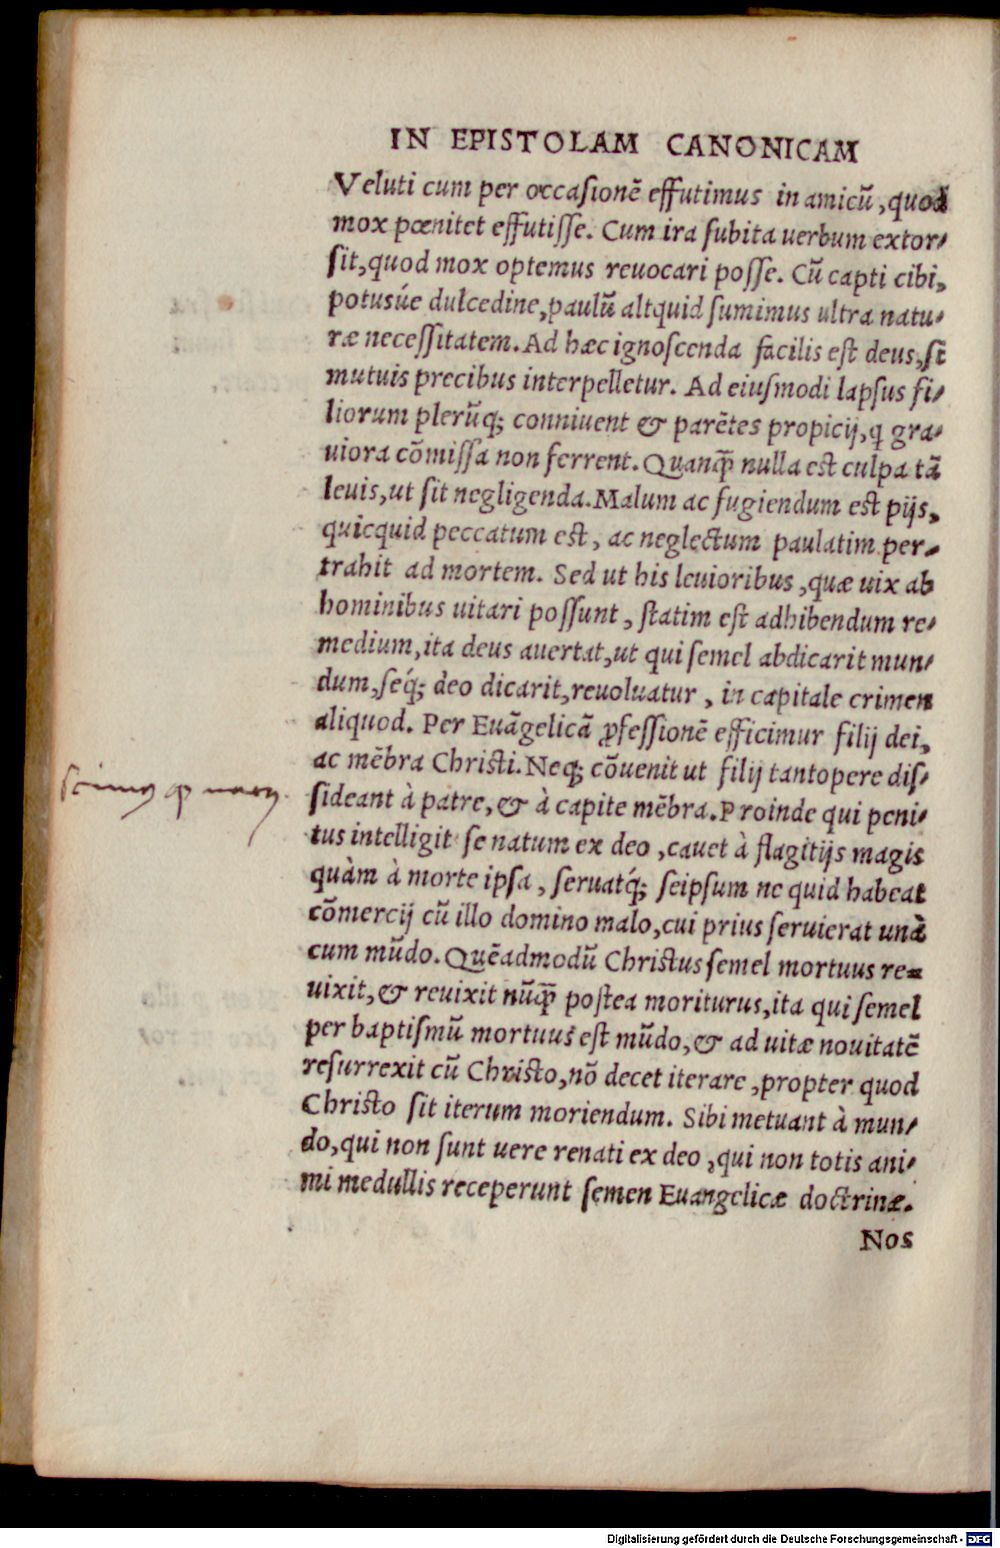 IN EPISTOLAM CANONICAM
Veluti cum per occasionē effutimus in amicū, quod
mox pœnitet effutisse. Cum ira subita uerbum extor-
sit, quod mox optemus reuocari posse. Cū capti cibi,
potusúe dulcedine, paulū altquid sumimus ultra natu-
ræ necessitatem. Ad hæc ignoscenda facilis est deus, si
mutuis precibus interpelletur. Ad eiusmodi lapsus fi-
liorum plerūq; conniuent & parētes propicij, q gra-
uiora cōmissa non ferrent. Quanq̄ nulla est culpa tā
leuis, ut sit negligenda. Malum ac fugiendum est pijs,
quicquid peccatum est, ac neglectum paulatim per-
trahit ad mortem. Sed ut his leuioribus, quæ uix ab
hominibus uitari possunt, statim est adhibendum re-
medium, ita deus auertat, ut qui semel abdicarit mun-
dum, seq́; deo dicarit, reuoluatur, in capitale crimen
aliquod. Per Euāgelicā ꝓfessionē efficimur filij dei,
ac mēbra Christi. Neq; cōuenit ut filij tantopere dis-
sideant à patre, & à capite mēbra. Proinde qui peni-
tus intelligit se natum ex deo, cauet à flagitijs magis
quàm à morte ipsa, seruatq́; seipsum ne quid habeat
cōmercij cū illo domino malo, cui prius seruierat unà
cum mūdo. Quēadmodū Christus semel mortuus re-
uixit, & reuixit nūq̄ postea moriturus, ita qui semel
per baptismū mortuus est mūdo, & ad uitæ nouitatē
resurrexit cū Christo, nō decet iterare, propter quod
Christo sit iterum moriendum. Sibi metuant à mun-
do, qui non sunt uere renati ex deo, qui non totis ani-
mi medullis receperunt semen Euangelicæ doctrinæ.
Nos
Digitalisierung gefördert durch die Deutsche Forschungsgemeinschaft - DFG